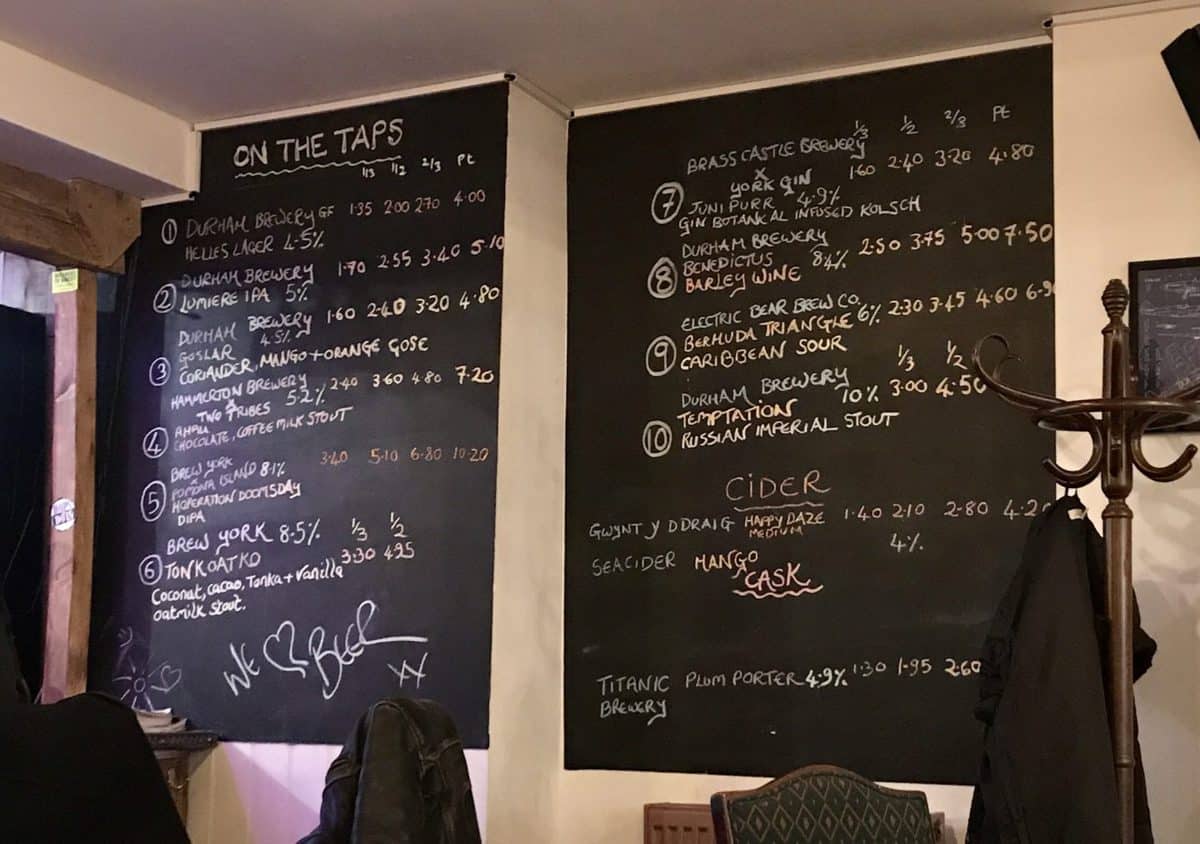 ON THE TAPS
1/3 1/2 2/3 Pt
1 DURHAM BREWERY GF 1·35 2·00 2·70 4·00
HELLES LAGER 4·5%
DURHAM BREWERY 1·70 2·55 3·40 5·10
2 LUMIERE IPA 5%
DURHAM BREWERY 1·60 2·40 3·20 4·80
GOSLAR 4·5%
3 CORIANDER, MANGO + ORANGE GOSE
HAMMERTON BREWERY 2·40 3·60 4·80 7·20
X
TWO TRIBES 5·2%
4 CHOCOLATE, COFFEE MILK STOUT
BREW YORK 3·40 5·10 6·80 10·20
X
POMONA ISLAND 8·1%
5 HOPERATION DOOMSDAY
DIPA
BREW YORK 8·5% 1/3 1/2
6 TONKOATKO 3·30 4·95
Coconut, cacao, Tonka + Vanilla
oatmilk stout.
WE ♡ BEER
XX
1/3 1/2 2/3 Pt
BRASS CASTLE BREWERY 1·60 2·40 3·20 4·80
X
YORK GIN
7 JUNIPURR 4·9%
GIN BOTANICAL INFUSED KOLSCH
DURHAM BREWERY 2·50 3·75 5·00 7·50
8 BENEDICTUS 8·4%
BARLEY WINE
ELECTRIC BEAR BREW CO. 6% 2·30 3·45 4·60 6·9
9 BERMUDA TRIANGLE
CARIBBEAN SOUR
1/3 1/2
DURHAM BREWERY 10% 3·00 4·50
10 TEMPTATION
RUSSIAN IMPERIAL STOUT
CIDER
GWYNT Y DDRAIG HAPPY DAZE 1·40 2·10 2·80 4·20
MEDIUM
4%.
SEACIDER MANGO
CASK
TITANIC PLUM PORTER 4·9% 1·30 1·95 2·60
BREWERY